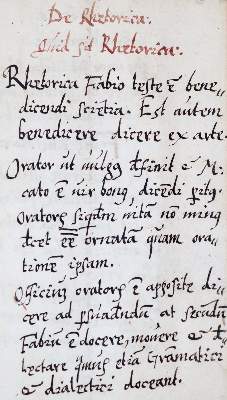 De Rhetorica.
Quid sit Rhetorica.
Rhetorica Fabio teste ē bene
dicendi sciētia. Est autem
benedicere dicere ex arte.
Orator ut vulgo difinit & M.
cato ē uir bonꝰ dicēdi peritꝰ.
Oratorē siqdm uitā nō minꝰ
decet eē ornatā quam ora-
tionē ipsam.
Officiū oratorꝭ ē apposite di-
cere ad persuadendū at secūdū
Fabiū ē docere, mouere & de-
lectare quāuis etiā Grāmatici
& dialectici doceant.